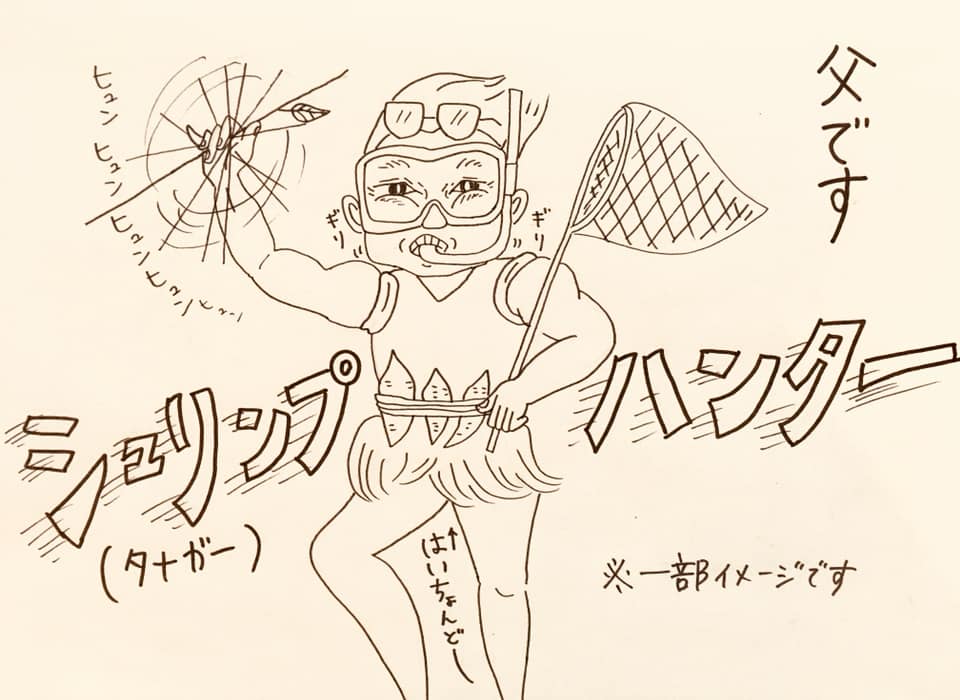 父です
ヒュン
ヒュン
ヒュン
ヒュン
ヒュン
ギリ
ギリ
シュリンプ
ハンター
(タナガー)
↑はいちょんどー
※一部イメージです